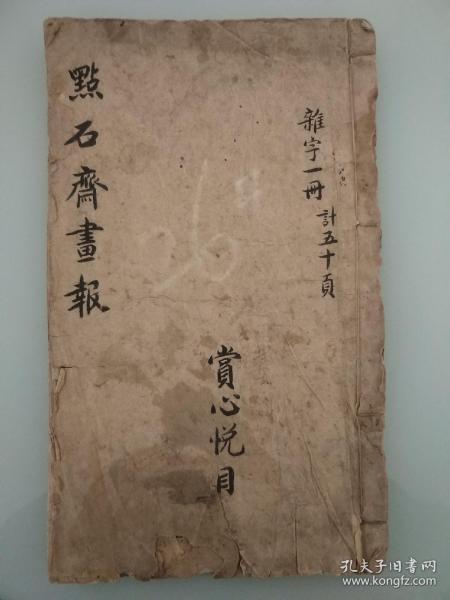 點石齋畫報
雜字一冊 計五十頁
賞心悅目
孔夫子旧书网
www.kongfz.com